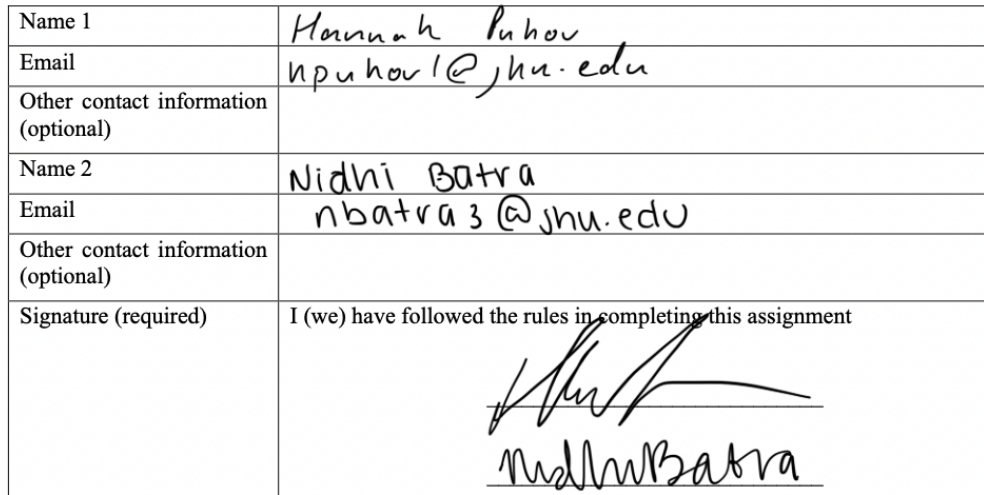 Name 1 Hannah Puhov
Email npuhov1@jhu.edu
Other contact information
(optional)
Name 2 Nidhi Batra
Email nbatra3@jhu.edu
Other contact information
(optional)
Signature (required) I (we) have followed the rules in completing this assignment
Nidhi Batra